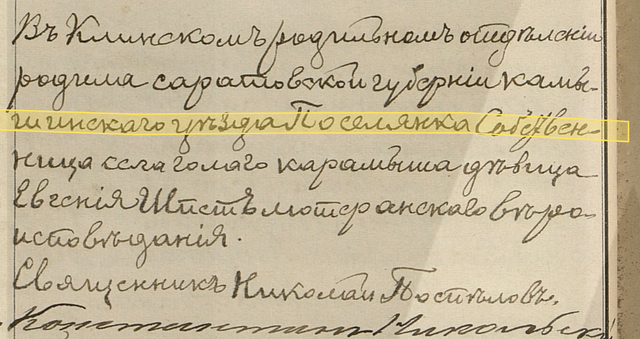 Въ Клинскомъ родильномъ отдѣленіи
родила саратовской губерніи камы-
шинскаго уѣзда Поселянка Собствен-
ница села голаго карамыша дѣвица
Евгенія Шпетъ лютеранскаго вѣро-
исповѣданія.
Священникъ Николай Поспѣловъ.
Константинъ Никольск